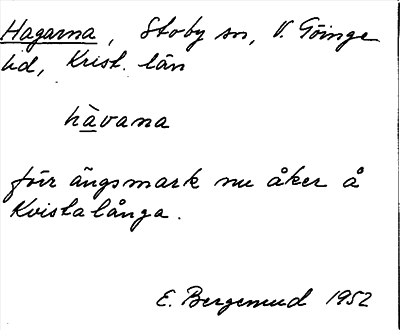 Hagarna, Stoby sn, V. Göinge
hd, Krist. län
hàvana
förr ängsmark nu åker å
Kvistalånga.
E. Bergemud 1952